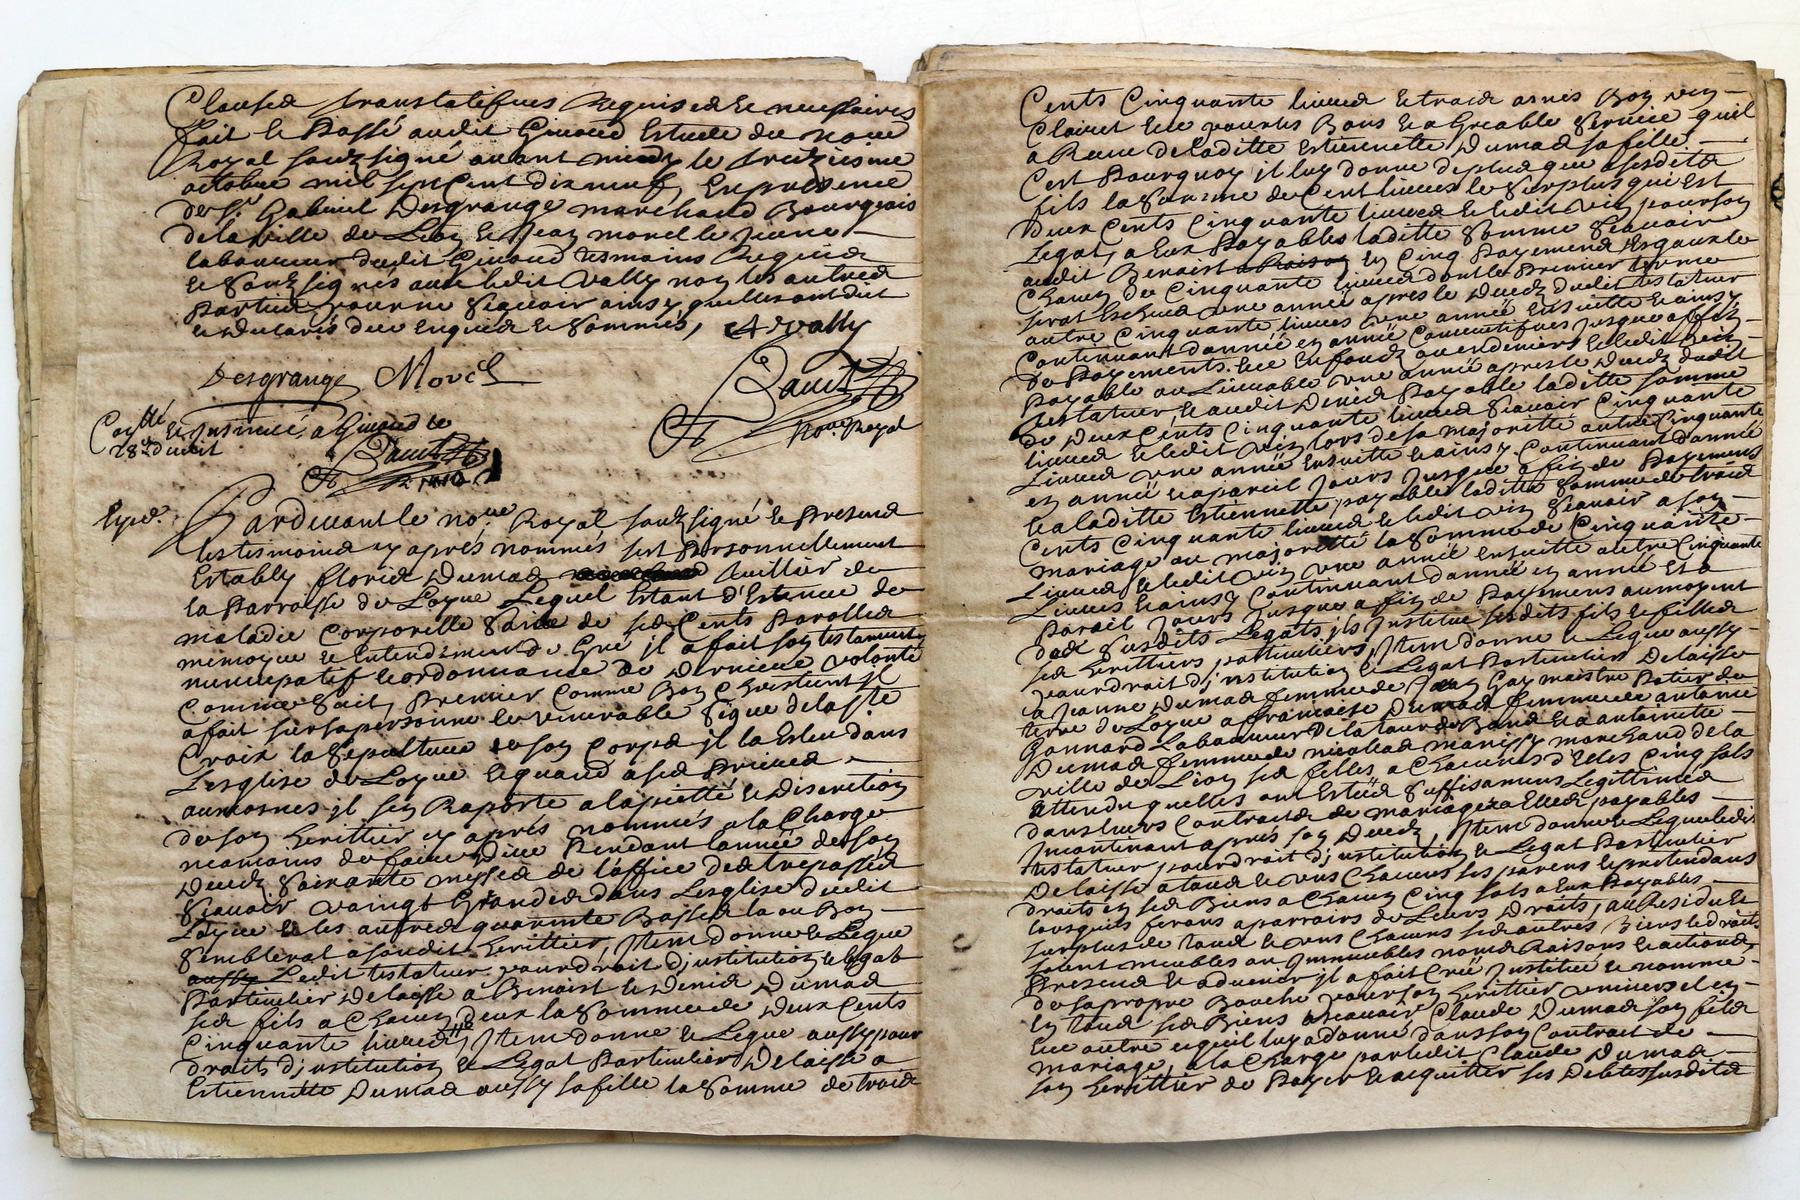 Clauses translatifves Requises et necessaires
fait et Passé audit Givord Estude du no.re
Royal soubsigné avant midy le treizieme
octobre mil sept cent dix neuf En presence
de s.r Gabriel Desgrange marchand Bourgeois
de la ville de Lion et Jean morel le jeune
laboureur dudit Givord tesmoins Requis
et soubsignés avec ledit Vally non les autres
Parties pour ne sçavoir ainsy quelles ont dit
et declaré de ce enquis et sommés, A Vally
Desgrange Morel
no.re Royal
Con.llé et Insinué a Givord le
28.e dudit
Expé.
Pardevant le no.re Royal soubsigné et Presend
les tesmoins cy aprés nommés fut Personnellement
Estably floris Dumas Tuillier de
la Parroisse de Loyre Lequel Estant d'Estenue de
maladie Corporelle saine de ses Cents Parolles
memoyre et Entendement de Gré il a fait son testament
nuncupatif et ordonnance de Derniere volonté
Comme suit, Premier Comme Bon Chrestient il
a fait sur sa personne le venerable signe de la ste
Croix la sepulture de son Corps il la Esleu dans
Lesglise de Loyre Et quand a ses Prieres
aumosnes il sen Raporte a la pietté et Discretion
de son heritier cy aprés nommés a la Charge
neamoins de faire Dire Pendant l'année de son
Deceds soixante messes de l'office des trepassés
sçavoir vaingt Grandes dans Lesglise dudit
Loyre et les autres quarante Basses la ou Bon
semblerat a sondit heritier, Item donne et Legue
Ledit testateur pour droit d'institution et legat
Particulier Delaisse a Benoist et Denis Dumas
ses fils a Chacun Deux la somme de Deux Cents
Cinquante livres, Item donne et Legue aussy pour
droits d'institution et Legat Particulier Delaisse a
Estiennette Dumas aussy sa fille la somme de trois
Cents Cinquante livres et trois asnés Bon vin
Clairet Et ce pour les Bons et agreable service quil
a Receu de laditte Estiennette Dumas sa fille
C'est Pourquoy il luy donne de plus que a sesdits
fils la somme de Cent livres le surplus qui est
Deux Cents Cinquante livres et ledit vin pour son
Legat, a Eux Payables laditte somme sçavoir
audit Benoist En Cinq Payemens Esgaux de
Chacun de Cinquante livres dont le Premier terme
serat Escheu une année apres le Deceds dudit testateur
autre Cinquante livres une année Ensuitte et ainsy
Continuant dannée en année Consecutifves jusque a fin
de Payements. Et ce En fonds ou en deniers
Payable ou Livrable une année apres le Deceds dudit
testateur Et audit Denis Payable laditte somme
de Deux Cents Cinquante livres sçavoir Cinquante
livres lors de sa majorette autre Cinquante
Livres une année Ensuitte et ainsy Continuant d'année
en année et a pareil Jours Jusque a fin de Payemens
Et a laditte Estiennette payable laditte somme de trois
Cents Cinquante livres et ledit vin sçavoir a son
mariage ou majorette la somme de Cinquante
Livres et ledit vin une année ensuitte autre Cinquante
Livres et ainsy Continuant dannée en année Et a
Parait Jours Jusque a fin de Payemens au moyent
des susdits Legats ils Institue sesdits fils et filles
ses heritiers particuliers, Item donne et Legue aussy
pour droit d'institution et Legat Particulier Delaisse
a Jeanne Dumas femme de Jean Gay maistre Potier de
terre de Loyre a francoise Dumas femme de antoine
Bonnard Laboureur et a antoinette
Dumas femme de nicolas marchand de la
ville de Lion ses filles a Chacunes d'Elles Cinq sols
attendu quelles ont Estés suffisament Legittimés
dans leurs Contracts de mariages a Elles payables
Incontinant aprés son Deceds, Item donne et Legue ledit
testateur pour droit d'institution et Legat Particulier
Delaisse a tous et uns Chacuns ses parens et pretendans
droits en ses Biens a Chacun Cinq sols a Eux Payables
lorsquils feront aparroirs de Leurs Droits, au Residu et
surplus de tous et uns Chacuns ses autres Biens et droits
soient meubles ou Immeubles noms Raisons et actions
Presens et advenir il a fait Créé Institué et nommé
de sa propre Bouche pour son heritier universel en
En tous ses Biens sçavoir Claude Dumas son fils
Et ce outre ce quil luy a donné dans son Contrat de
mariage, a la Charge par ledit Claude Dumas
son heritier de Payer Et acquitter ses Debtes susdits